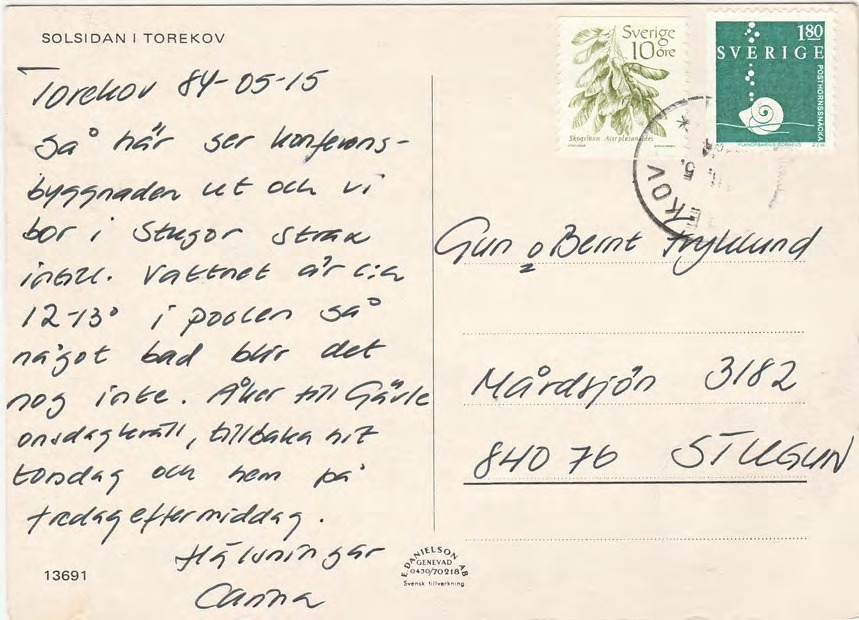 SOLSIDAN I TOREKOV
Torekov 84-05-15
Så här ser konferens-
byggnaden ut och vi
bor i stugor strax
intill. Vattnet är c:a
12-13° i poolen så
något bad blir det
nog inte. Åker till Gävle
onsdagkväll, tillbaka hit
torsdag och hem på
fredageftermiddag.
Hälsningar
Canna
13691
E. DANIELSON AB
GENEVAD
0430/70218
Svensk tillverkning
Sverige
10 öre
Skogslönn Acer platanoides
1.80
SVERIGE
POSTHORNSSNÄCKA
PLANORBARIUS CORNEUS
EKOV
Gun o Bernt Fryklund
Mårdsjön 3182
840 76 STUGUN